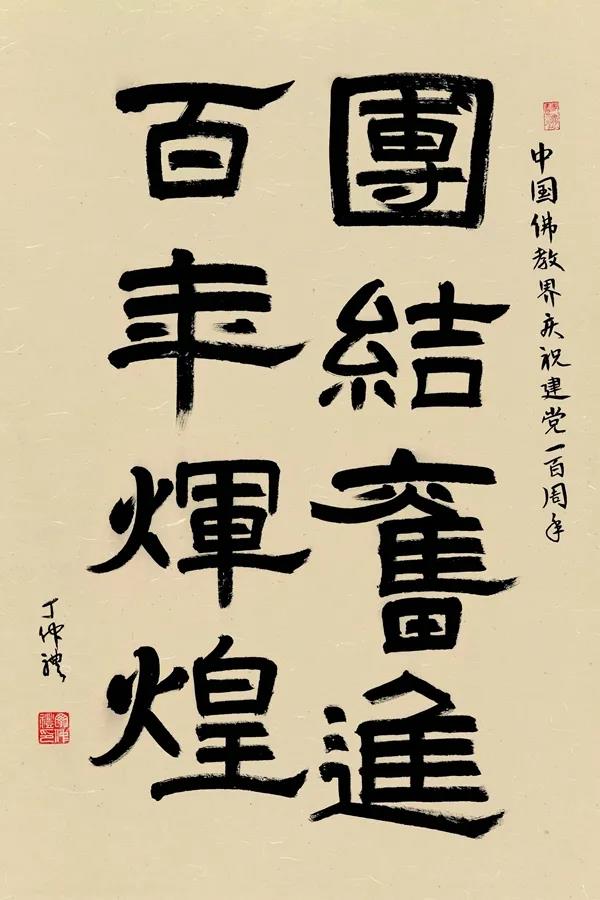 中国佛教界庆祝建党一百周年
團結奮進
百年輝煌
丁仲禮